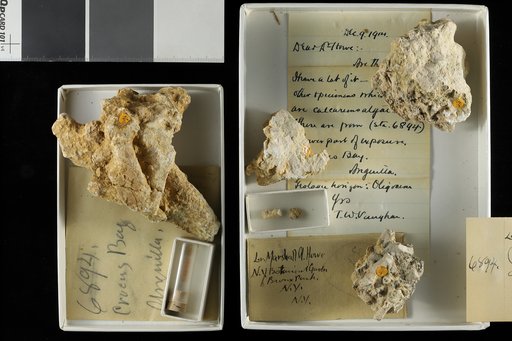 QPCARD 101 v4
6894.
Crocus Bay
Anguilla.
Dec. 9th 1914
Dear Dr Howe:
Are th
I have a lot of it—
other specimens which
are calcareous algae
There are from (sta. 6894)
lower part of exposure
Bay.
Anguilla.
Geologic horizon: Oligocene
Yrs
T.W. Vaughan.
Dr. Marshall A. Howe
N.Y. Botanical Garden
Bronx Park.
N.Y.
N.Y.
6894.